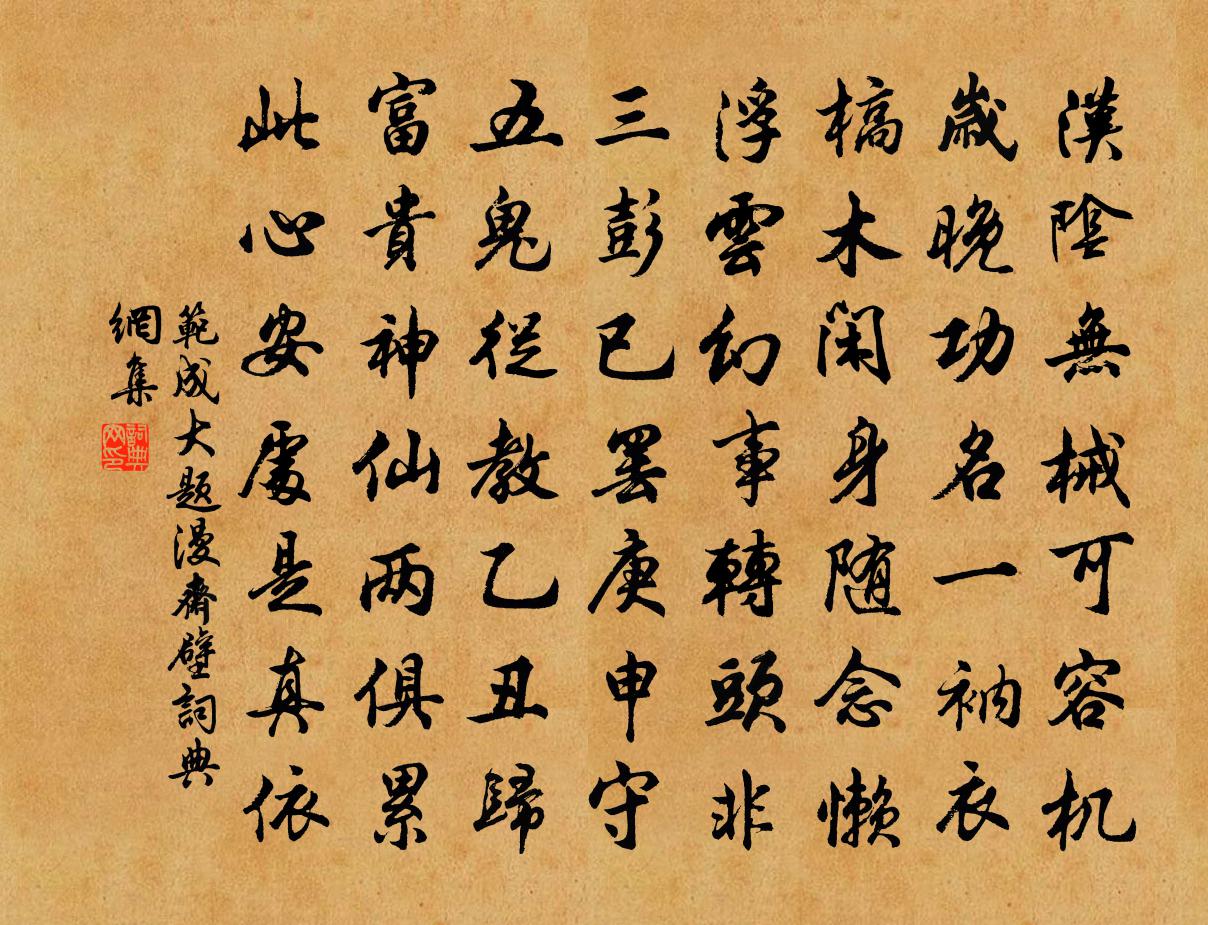 漢陰無械可容机
歲晚功名一衲衣
槁木閑身随念懶
浮雲幻事轉頭非
三彭已罢庚申守
五鬼從教乙丑歸
富貴神仙两俱累
此心安處是真依
範成大题漫齋壁詞典
網集
詞典網印